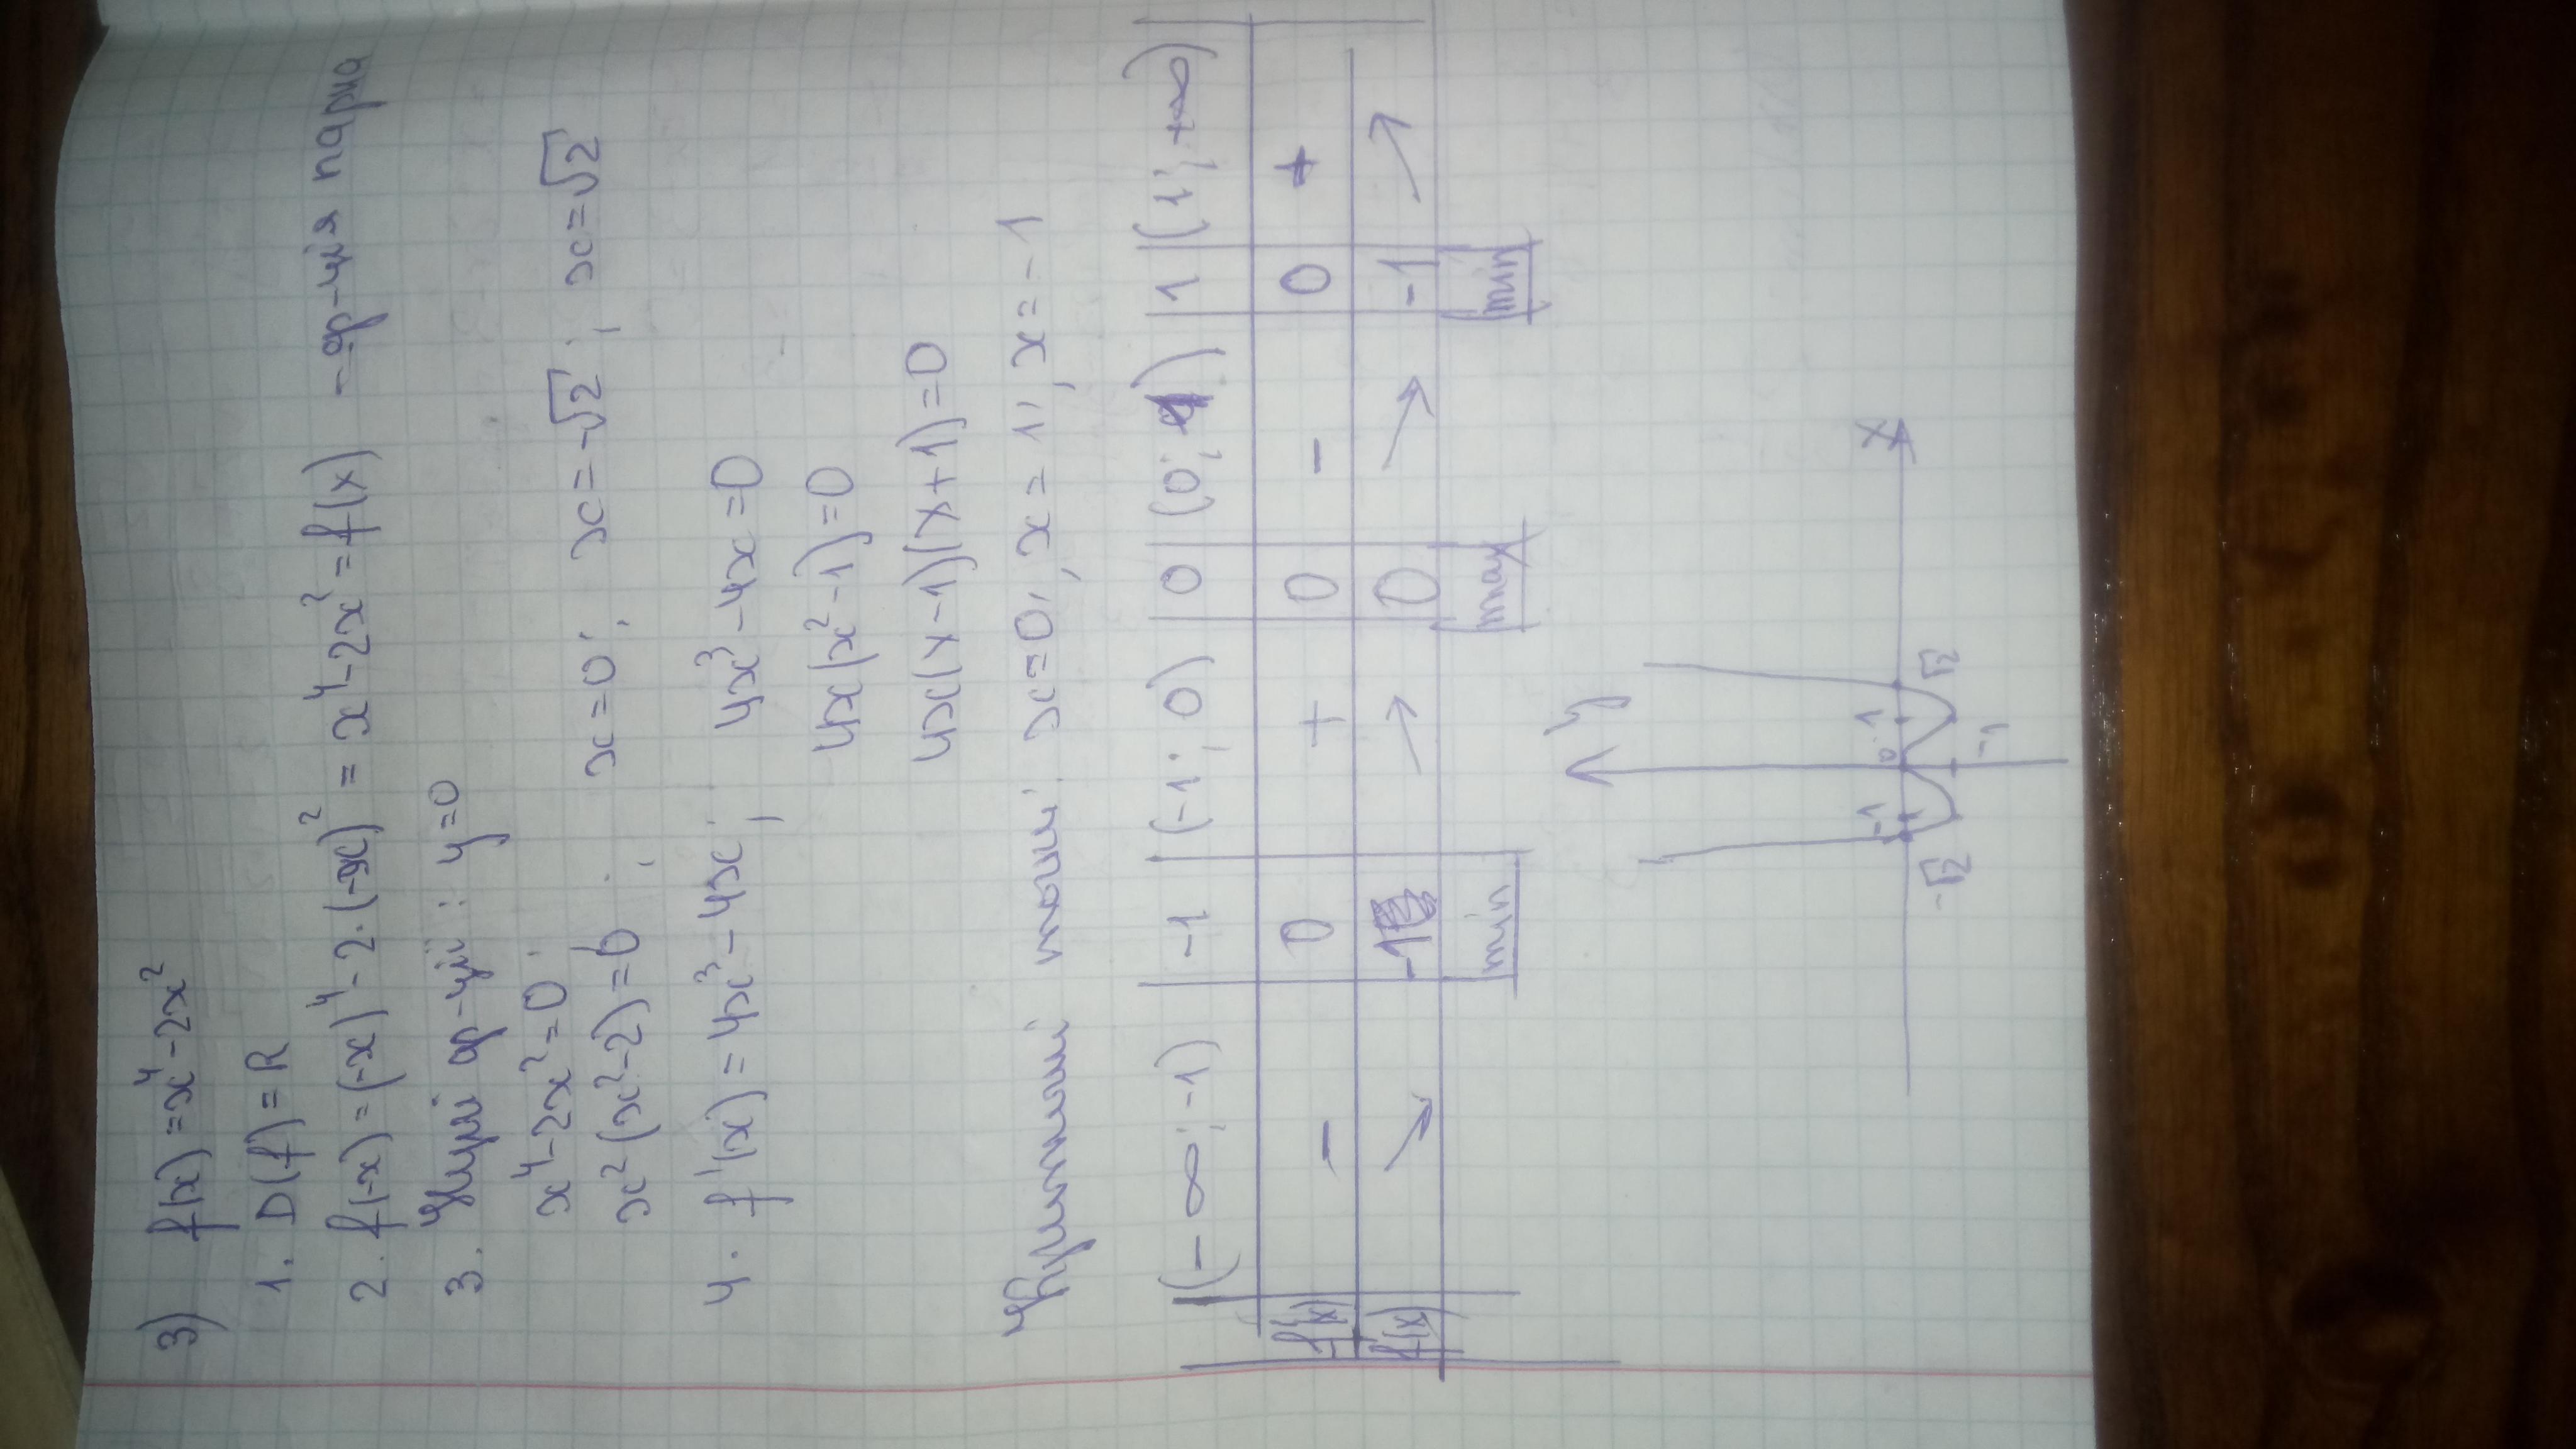 3) f(x) = x⁴-2x²
1. D(f) = R
2. f(-x) = (-x)⁴ - 2·(-x)² = x⁴-2x² = f(x) - ф-ція парна
3. Нулі ф-ції : y=0
x⁴-2x²=0
x²(x²-2)=0 ; x=0; x=-√2; x=√2
4. f'(x) = 4x³-4x; 4x³-4x=0
4x(x²-1)=0
4x(x-1)(x+1)=0
Критичні точки: x=0; x=1; x=-1
(-∞;-1) -1 (-1; 0) 0 (0; 1) 1 (1; +∞)
f'(x) - 0 + 0 - 0 +
f(x) ↘ -1 ↗ 0 ↘ -1 ↗
min max min
y
x
-1 0 1
-√2 √2
-1